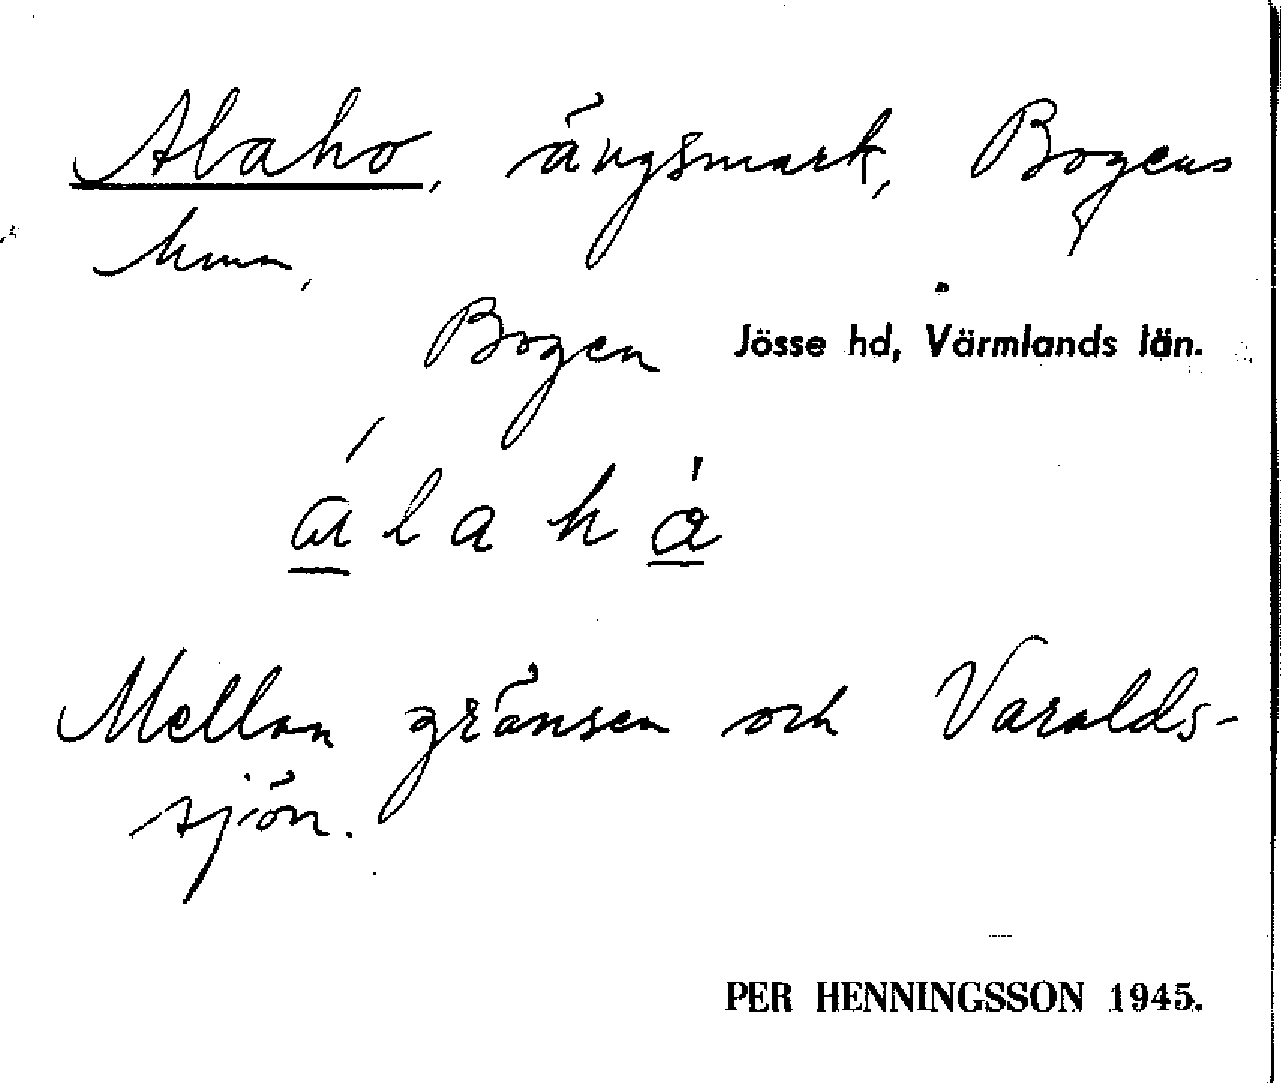 Alaho, ängsmark, Bogens
hmn,
Bogen Jösse hd, Värmlands län.
álahå̀
Mellan gränsen och Varalds-
sjön.
PER HENNINGSSON 1945.